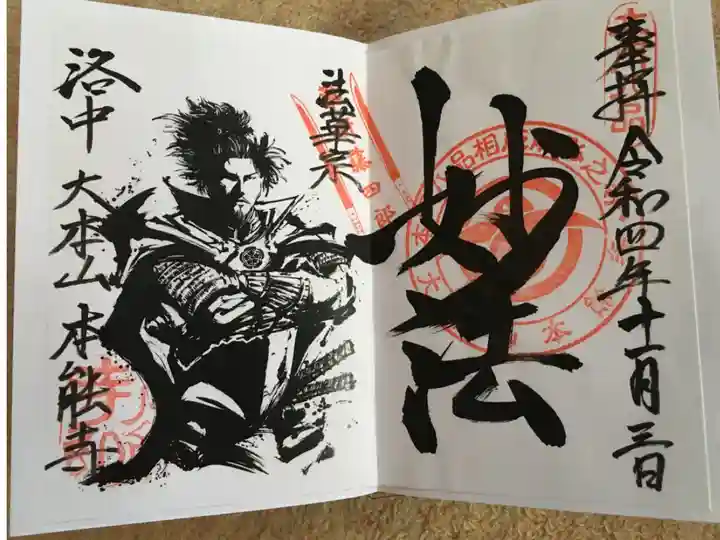 奉拝 令和四年十一月三日
妙法
法華宗
洛中 大本山 本能寺